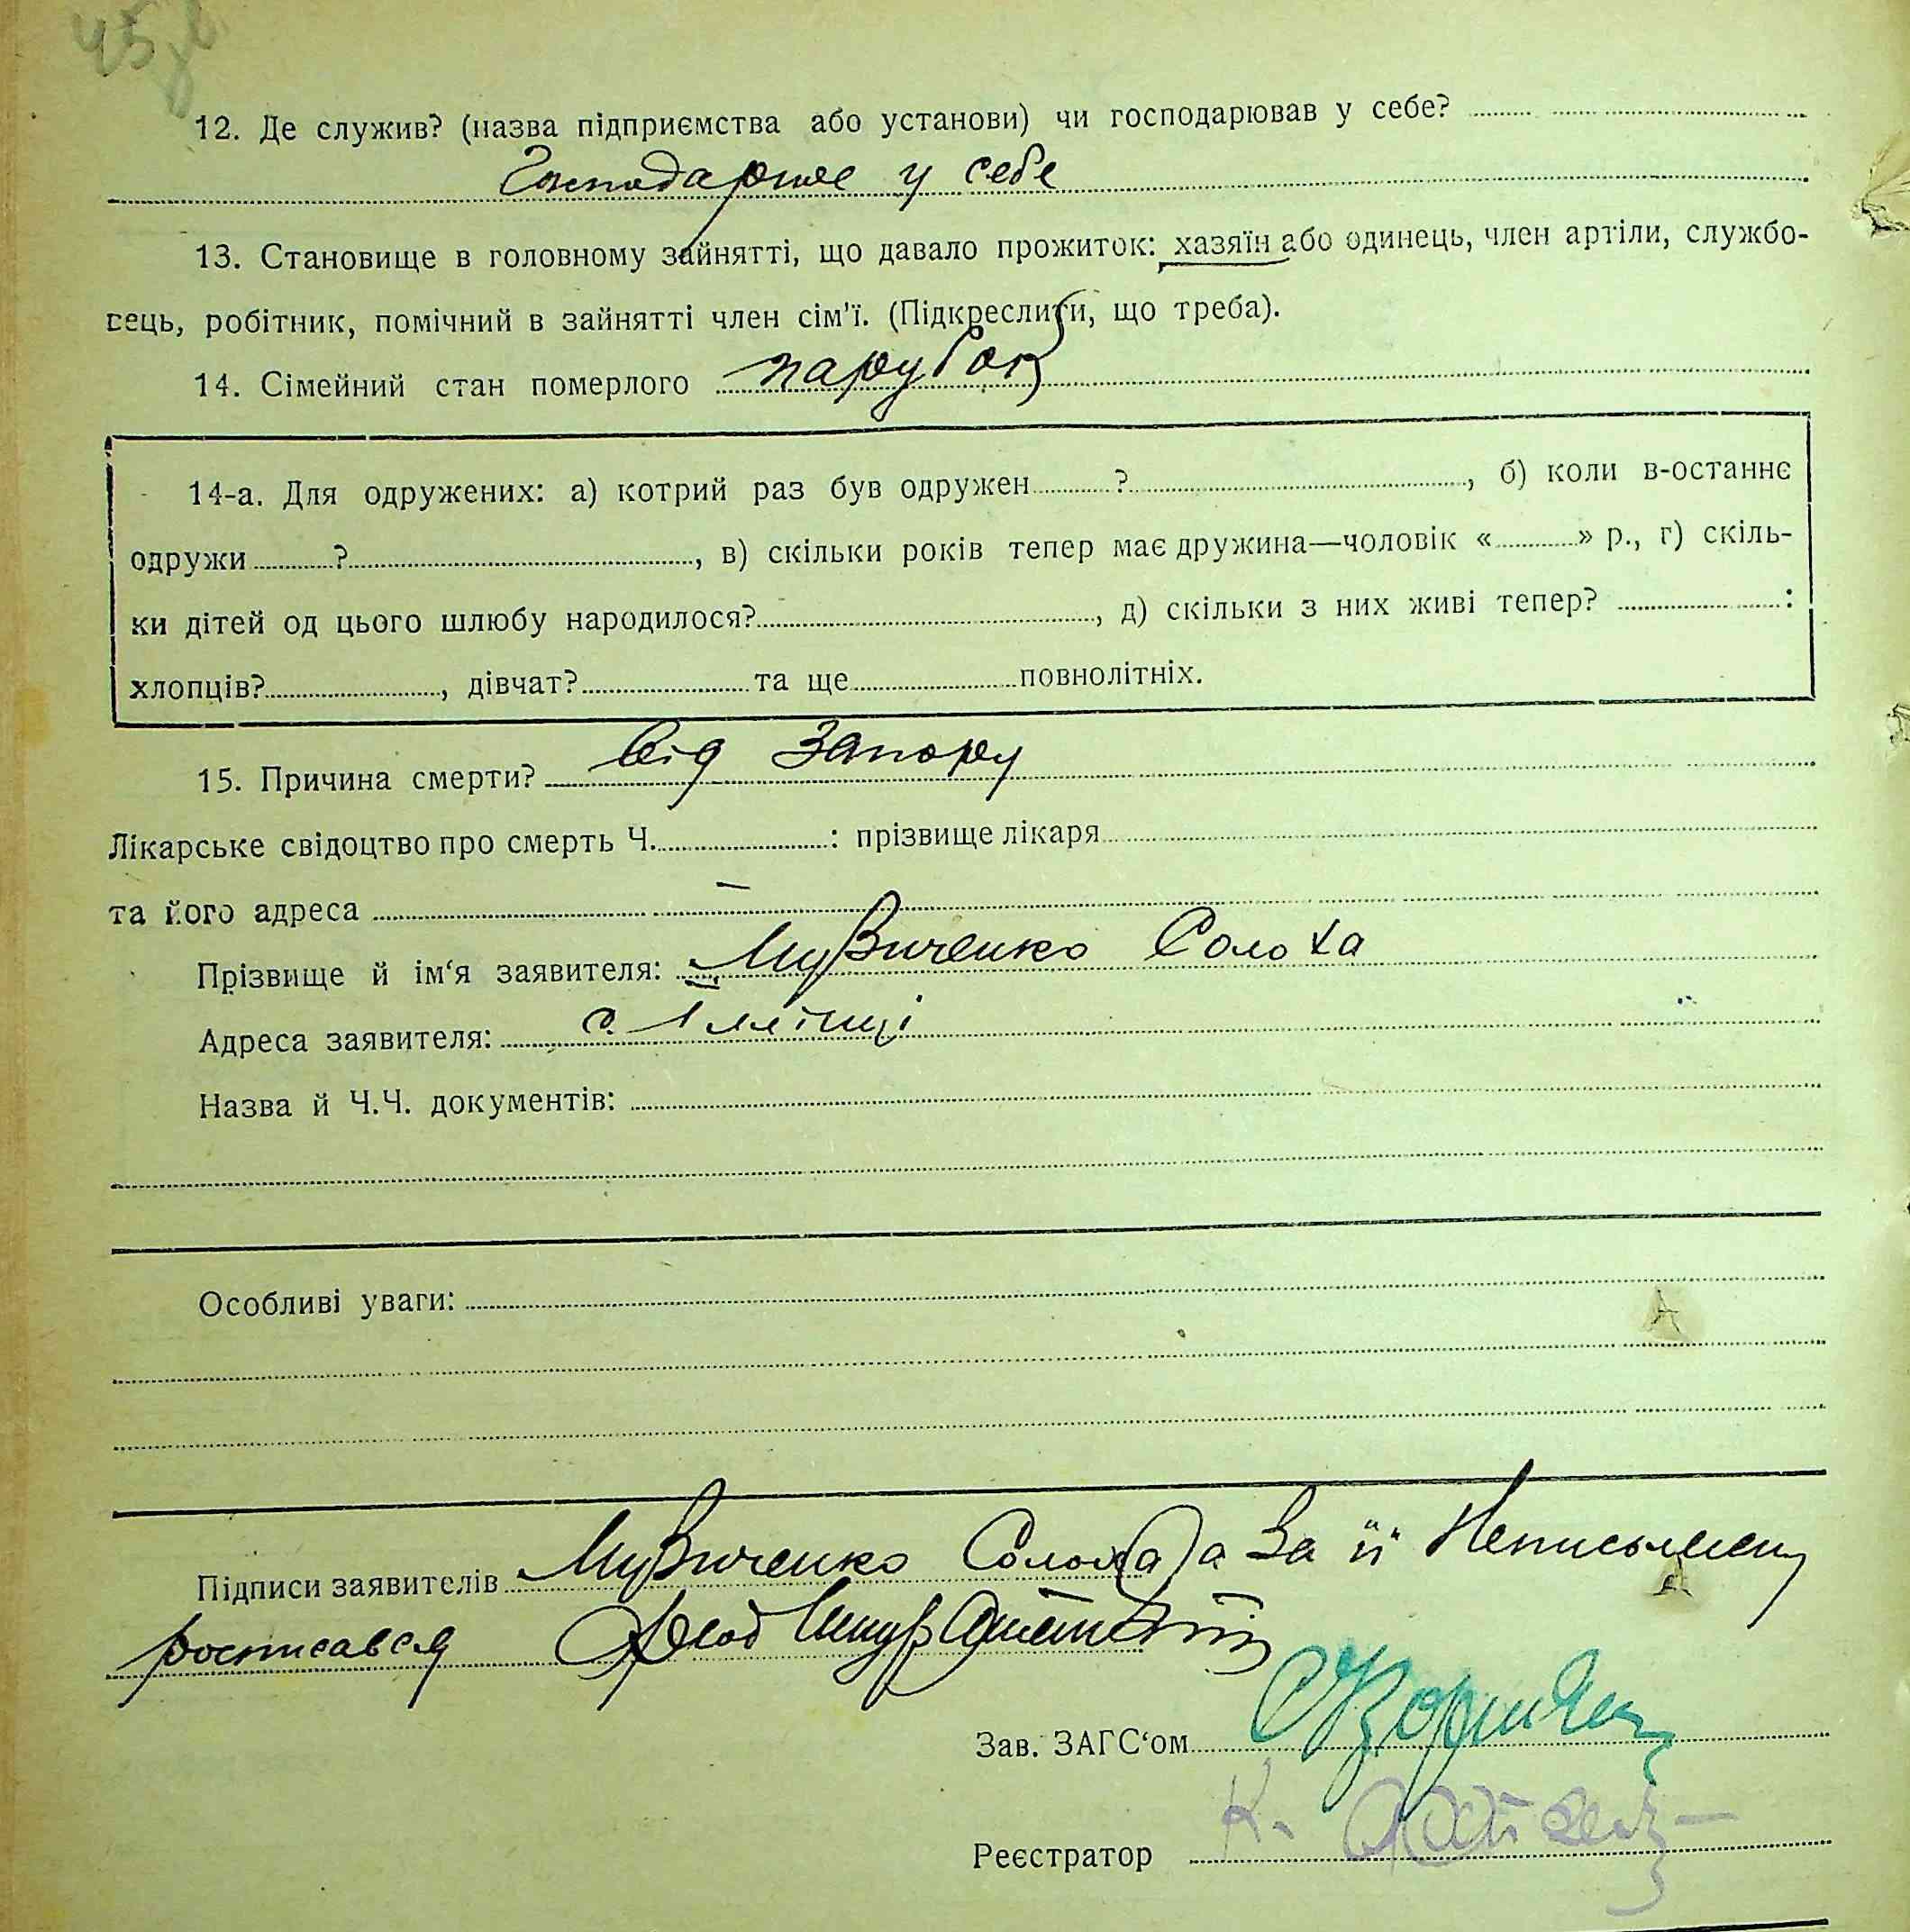 45
12. Де служив? (назва підприємства або установи) чи господарював у себе?
Господарює у себе
13. Становище в головному зайнятті, що давало прожиток: хазяїн або одинець, член артіли, службо-
вець, робітник, помічний в зайнятті член сім'ї. (Підкреслити, що треба).
14. Сімейний стан померлого парубок
14-а. Для одружених: а) котрий раз був одружен ? , б) коли в-останнє
одружи ? , в) скільки років тепер має дружина—чоловік « » р., г) скіль-
ки дітей од цього шлюбу народилося? , д) скільки з них живі тепер? :
хлопців? , дівчат? та ще повнолітніх.
15. Причина смерти? Від запору
Лікарське свідоцтво про смерть Ч. : прізвище лікаря
та його адреса —
Прізвище й ім‘я заявителя: Музиченко Солоха
Адреса заявителя: с.
Назва й Ч.Ч. документів:
Особливі уваги:
Підписи заявителів Музиченко Солоха а За її Неписьмену
росписався
Зав. ЗАГС‘ом
Реєстратор К.